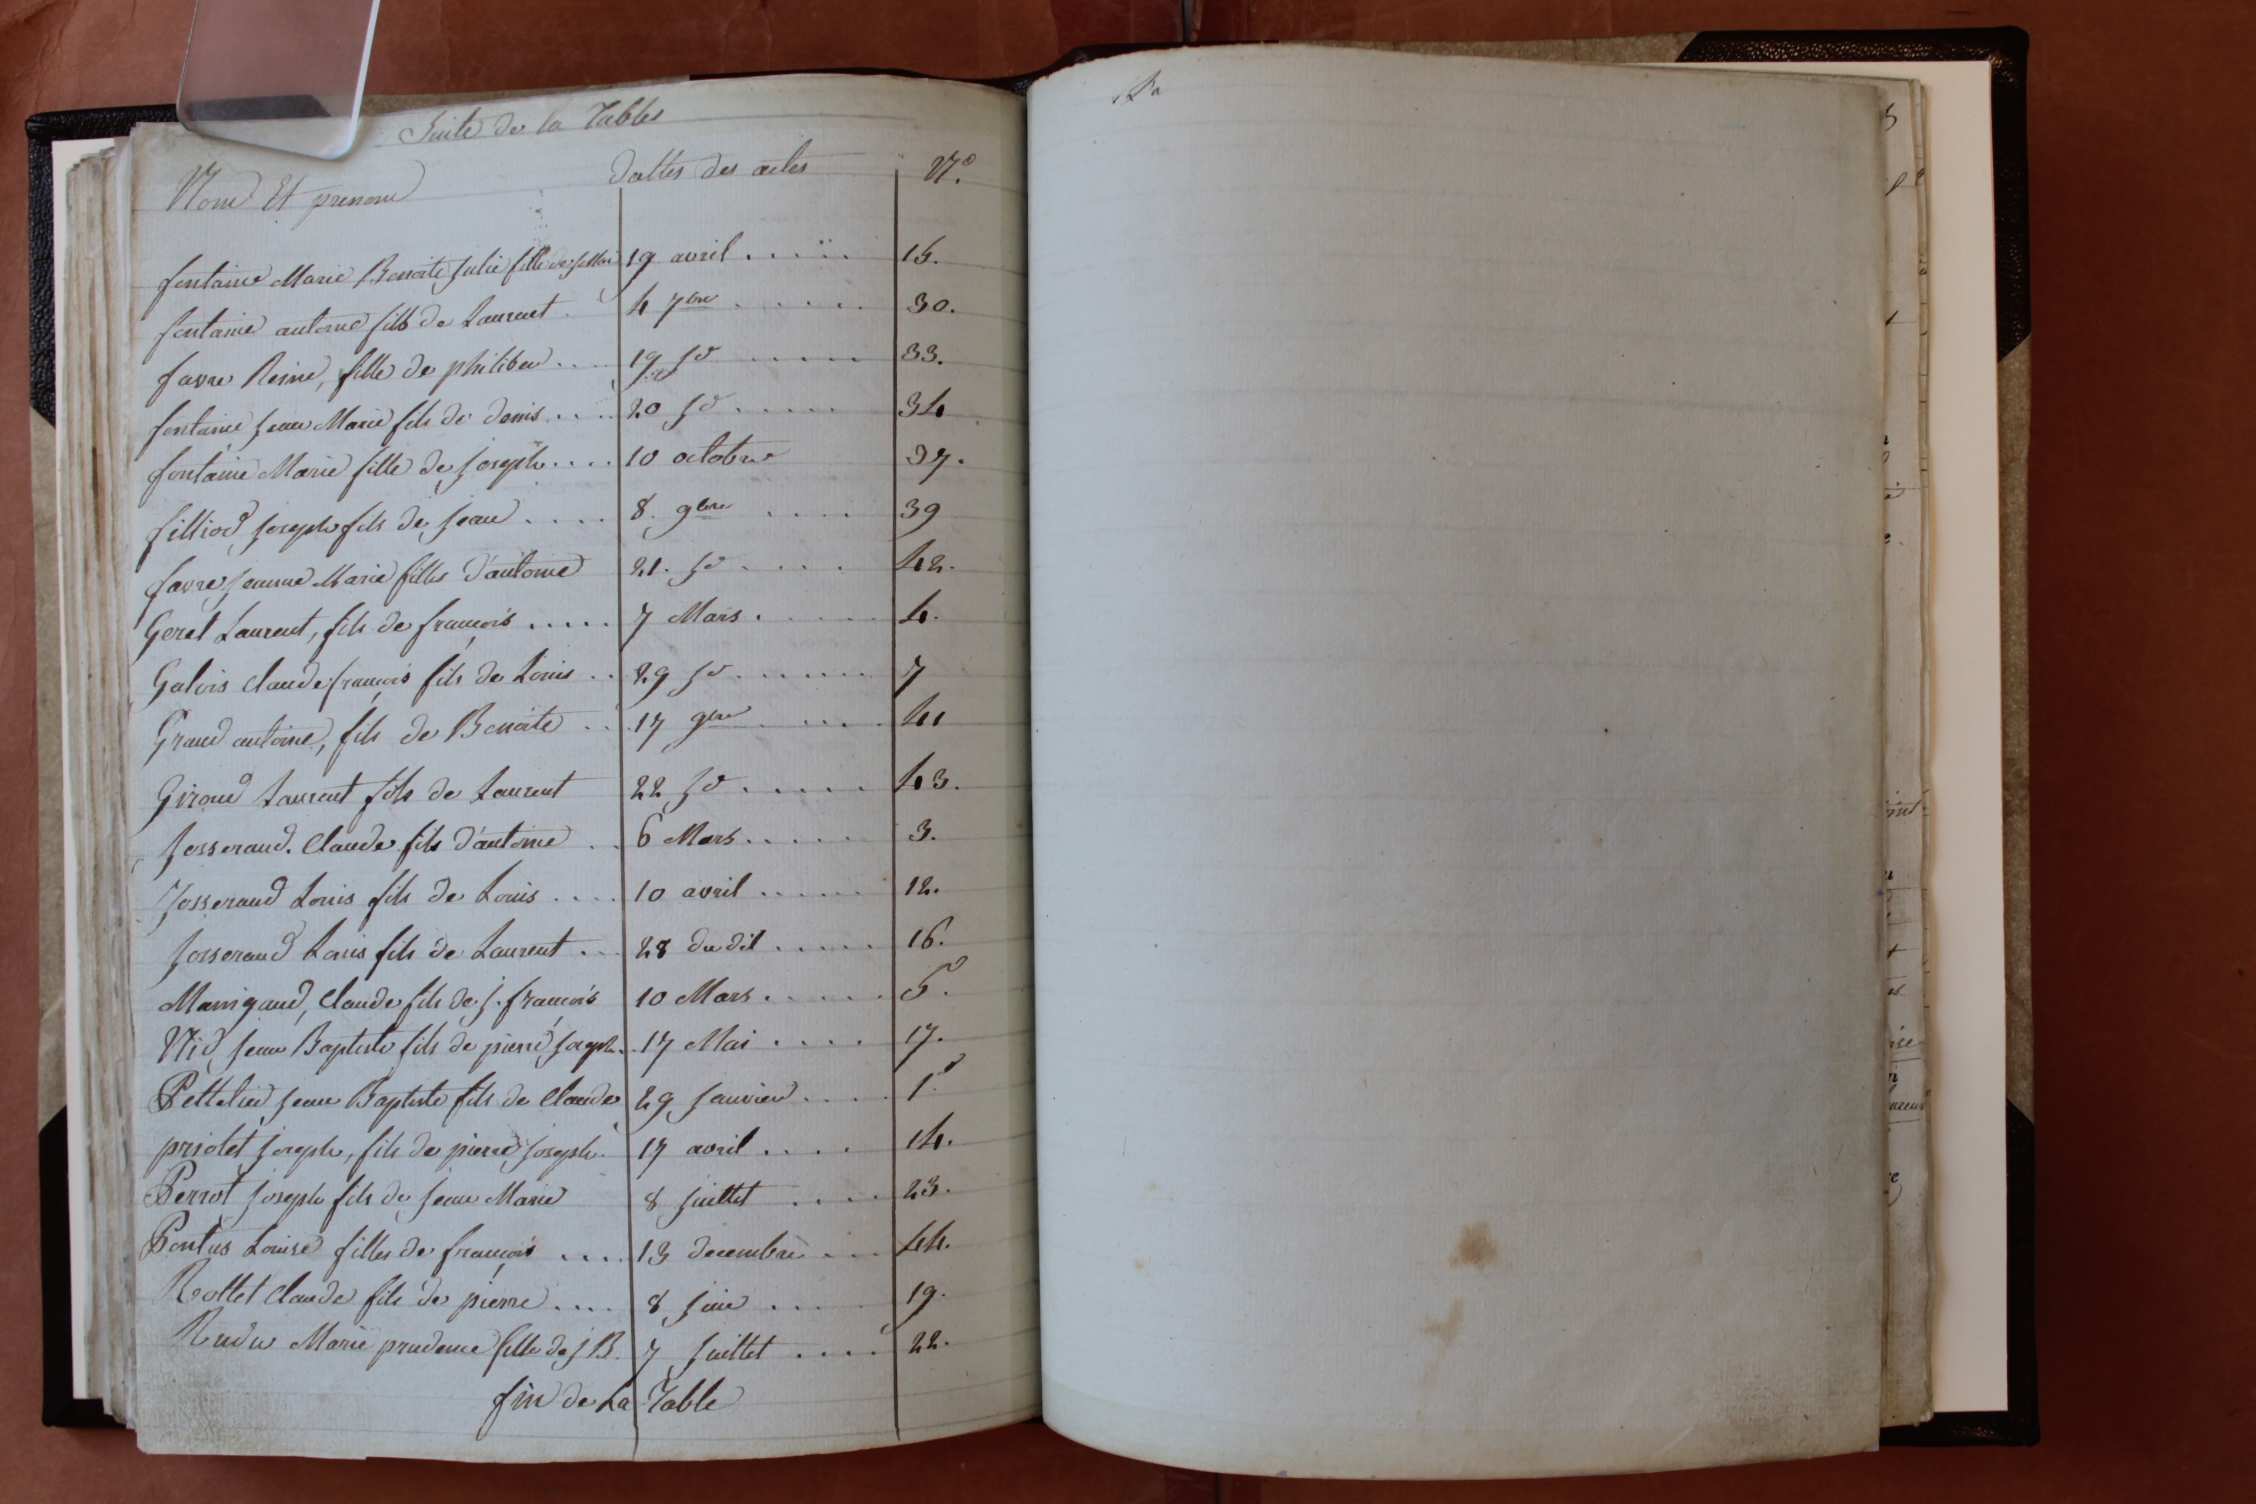 Suite de la Table
Nom Et prenom dattes des actes N.º
fontaine Marie Benoite Julie fille de 19 avril 15.
fontaine antoine fils de Laurent 4 7bre 30.
favre Reine, fille de philiber 19 jd 33.
fontaine jean Marie fils de denis 20 jd 34
fontaine Marie fille de joseph 10 octobre 37.
filliod joseph fils de jean 8. 9bre 39
favre jeanne Marie filles d'antoine 21. jd 42.
Geret Laurent, fils de françois 7 Mars 4.
Galois claude françois fils de Louis 29 jd 7
Grand antoine, fils de Benoite 17 9bre 41
Giroud Laurent fils de Laurent 22 jd 43.
josserand. Claude fils d'antoine 6 Mars 3.
josserand Louis fils de Louis 10 avril 12.
josserand Louis fils de Laurent 28 du dit 16.
Manigand, Claude fils de j. françois 10 Mars 5.
Nid jean Baptiste fils de pierre joseph 17 Mai 17.
Pettelier jean Baptiste fils de Claude 29 janvier 1.
priolet joseph, fils de pierre joseph 17 avril 14.
Perrot joseph fils de jean Marie 8 juillet 23.
Pontus Louise filles de françois 13 decembre 44.
Rollet Claude fils de pierre 8 juin 19.
Marie prudence fille de J B. 7 juillet 22.
fin de La Table